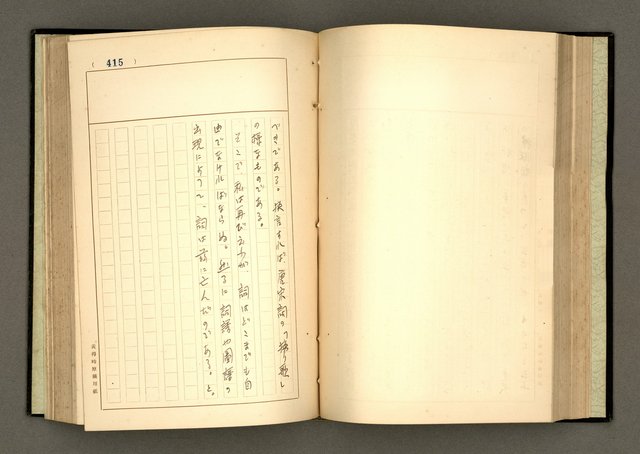 ( 415 )
べきである。換言すれば、唐宋詞の「替え歌」
の様なものである。
そこで、私は再び云うが、詞はどこまでも自
由でなければならぬ。然るに詞譜や図譜の
出現によって、詞は茲に亡んだのである。と。
黃得時原稿用紙